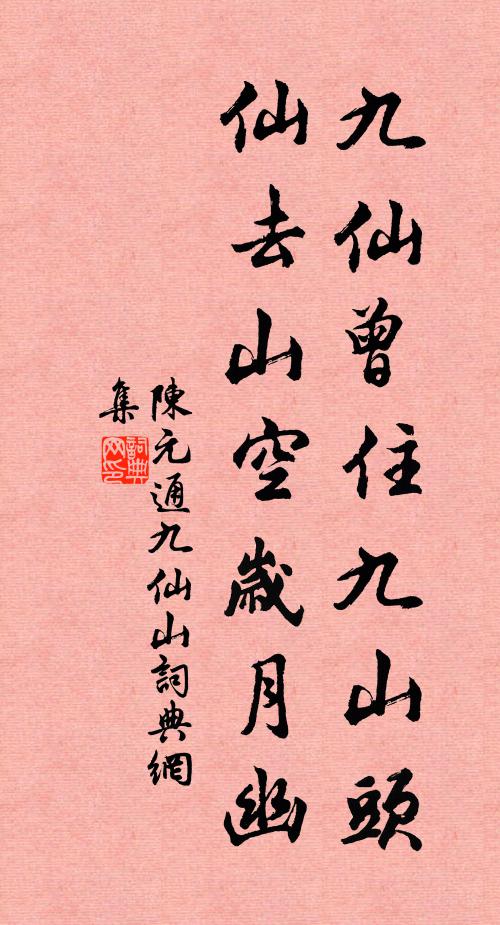 九仙曾住九山頭
仙去山空歲月幽
陳元通九仙山詞典網
集
詞典網印